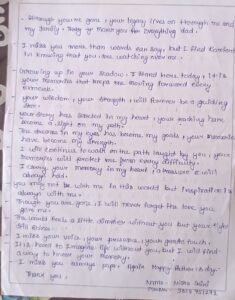 - Although you're gone, your legacy lives on through me and
my family. Today I thank you for everything dad.
I miss you more than words can say, but I find comfort
in knowing that you are watching over me.
Growing up in your shadow, I stand here today, it is
your memories that keeps me moving forward every
moment.
Your wisdom, your strength, will forever be a guiding
star.
Your story has started in my heart, your teaching have
become a light on my path.
The dreams in my eyes has become my goals, your
have become my strength.
I will continue to walk on the path taught by you, your
memories will protect me from every difficulty.
I carry your memory in my heart, a treasure I will
always hold.
you may not be with me in this world but inspiration is
always with me.
Though you are gone, I will never forget the love you
give me.
The world feels a little dimmer without you but your light
still shines.
I miss your voice, your presence, your gentle touch.
It is hard to imagine life without you, but I will find
a way to honor your memory.
I miss you always papa, again Happy Father's day.
Thank you.
Name - Nisha